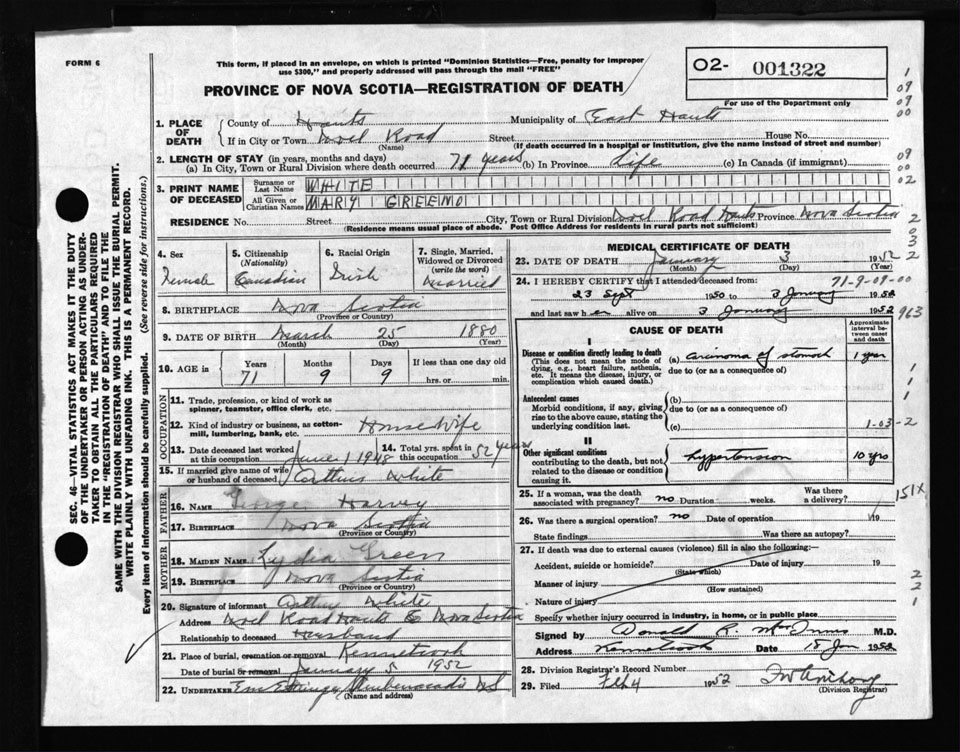 FORM 6
This form, if placed in an envelope, on which is printed "Dominion Statistics—Free, penalty for improper
use $300," and properly addressed will pass through the mail "FREE"
PROVINCE OF NOVA SCOTIA—REGISTRATION OF DEATH
O2- 001322
For use of the Department only
1. PLACE OF DEATH
County of Hants Municipality of East Hants
If in City or Town Noel Road Street House No.
(Name) (If death occurred in a hospital or institution, give the name instead of street and number)
2. LENGTH OF STAY (in years, months and days)
(a) In City, Town or Rural Division where death occurred 71 years (b) In Province Life (c) In Canada (if immigrant)
3. PRINT NAME OF DECEASED
Surname or Last Name WHITE
All Given or Christian Names MARY GREENO
RESIDENCE No. Street City, Town or Rural Division Noel Road Hants Province Nova Scotia
(Residence means usual place of abode. Post Office Address for residents in rural parts not sufficient)
4. Sex Female
5. Citizenship (Nationality) Canadian
6. Racial Origin Irish
7. Single, Married, Widowed or Divorced (write the word) Married
8. BIRTHPLACE Nova Scotia
(Province or Country)
9. DATE OF BIRTH March 25 1880
(Month) (Day) (Year)
10. AGE in Years 71 Months 9 Days 9 If less than one day old hrs. or min.
OCCUPATION
11. Trade, profession, or kind of work as spinner, teamster, office clerk, etc.
12. Kind of industry or business, as cotton-mill, lumbering, bank, etc. Housewife
13. Date deceased last worked at this occupation June 1 1948
14. Total yrs. spent in this occupation 52 years
15. If married give name of wife or husband of deceased Arthur White
FATHER
16. NAME George Harvy
17. BIRTHPLACE Nova Scotia
(Province or Country)
MOTHER
18. MAIDEN NAME Lydia Green
19. BIRTHPLACE Nova Scotia
(Province or Country)
20. Signature of informant Arthur White
Address Noel Road Hants Co Nova Scotia
Relationship to deceased Husband
21. Place of burial, cremation or removal Kennetcook
Date of burial or removal January 5 1952
22. UNDERTAKER
(Name and address)
MEDICAL CERTIFICATE OF DEATH
23. DATE OF DEATH January 3 1952
(Month) (Day) (Year)
24. I HEREBY CERTIFY that I attended deceased from: 71-9-09-00
23 Sept 1950 to 3 January 1952
and last saw her alive on 3 January 1952
963
CAUSE OF DEATH
Approximate interval between onset and death
I
Disease or condition directly leading to death (a) Carcinoma of stomach 1 year
(This does not mean the mode of dying, e.g., heart failure, asthenia, etc. It means the disease, injury, or complication which caused death.)
due to (or as a consequence of)
Antecedent causes
(b)
Morbid conditions, if any, giving rise to the above cause, stating the underlying condition last.
due to (or as a consequence of)
(c) 1-03-2
II
Other significant conditions contributing to the death, but not related to the disease or condition causing it.
Hypertension 10 yrs
25. If a woman, was the death associated with pregnancy? no Duration weeks. Was there a delivery?
151X
26. Was there a surgical operation? no Date of operation 19
State findings Was there an autopsy?
27. If death was due to external causes (violence) fill in also the following:—
Accident, suicide or homicide? Date of injury 19
(State which)
Manner of injury
(How sustained)
Nature of injury
Specify whether injury occurred in industry, in home, or in public place
Signed by Donald R. M.D.
Address Kennetcook Date 15 Jan 1952
28. Division Registrar's Record Number
29. Filed Feb 4 1952
(Division Registrar)
SEC. 46—VITAL STATISTICS ACT MAKES IT THE DUTY
OF THE UNDERTAKER OR PERSON ACTING AS UNDER-
TAKER TO OBTAIN ALL THE PARTICULARS REQUIRED
IN THE "REGISTRATION OF DEATH" AND TO FILE IT THE
SAME WITH THE DIVISION REGISTRAR WHO SHALL ISSUE THE BURIAL PERMIT.
WRITE PLAINLY WITH UNFADING INK. THIS IS A PERMANENT RECORD.
Every item of information should be carefully supplied. (See reverse side for instructions.)